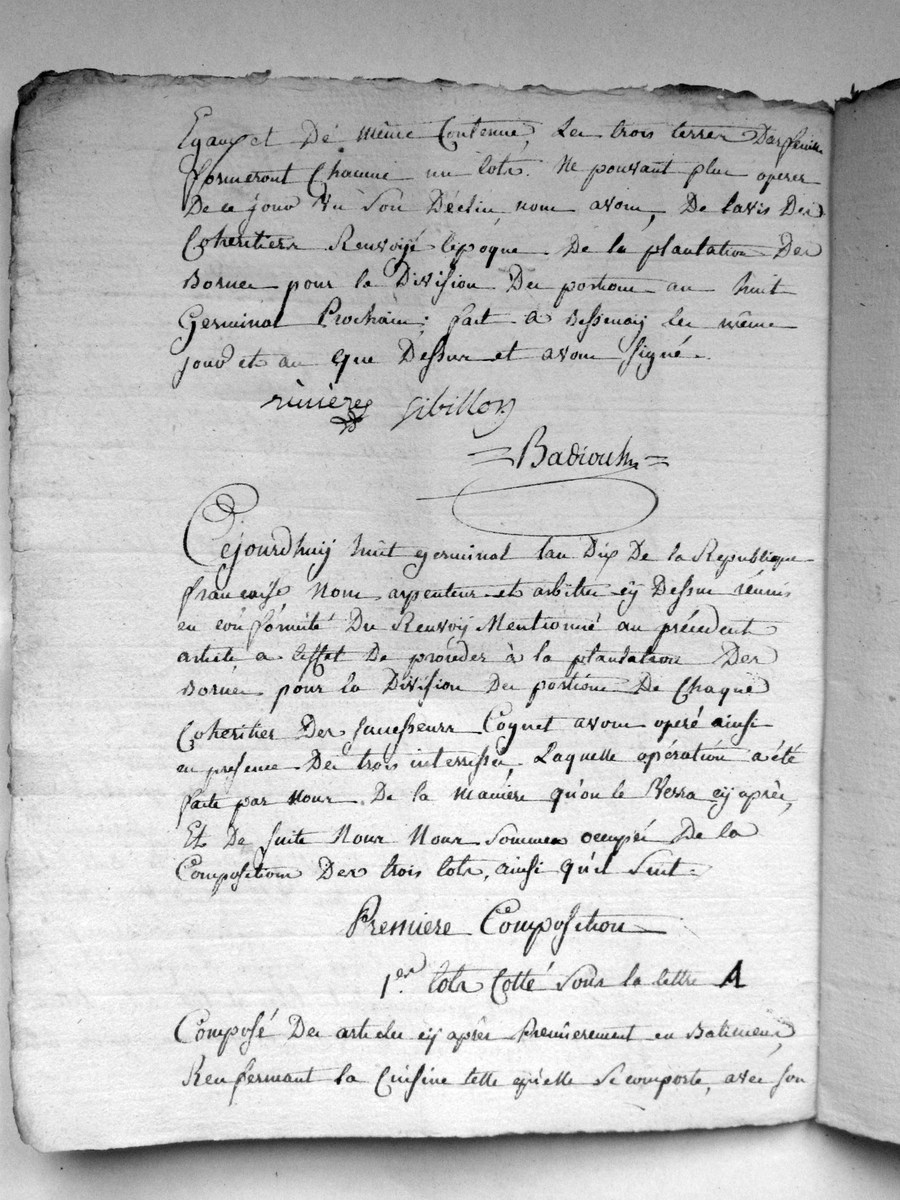 Egaux et De même Contenue, Les trois terres Darfeuille
formeront Chacune un lots. Ne pouvant plus operer
De ce jour vu Son Déclin, nous avons, De lavis Des
Coheritiers Renvoyé lépoque De la plantation Des
Bornes pour la Division Des portions au huit
Germinal Prochain; fait a Bessenay les même
jour et an que Dessus et avons signé.
rivières Sibillon
Badiou
Cejourdhuy huit germinal lan Dix De la Republique
francaise Nous arpenteur et arbitres cy Dessus réunis
en conformité Du Renvoy Mentionné au précédent
article a leffet De proceder à la plantation Des
Bornes pour la Division Des portions De Chaque
Coheritier Des successeurs Coquet avons operé ainsi
en presence Des trois interressés Laquelle opération a été
faite par nous De la maniere qu'on le Verra cy après,
Et De suite Nous Nous sommes occupés De la
Composition Des trois lots, ainsi qu'il Suit.
Premiere Composition
1er. lots Cotté Sous la lettre A
Composé Des articles cy après Premièrement en Batiments,
Renfermant la Cuisine telle qu'elle Se comporte, avec son